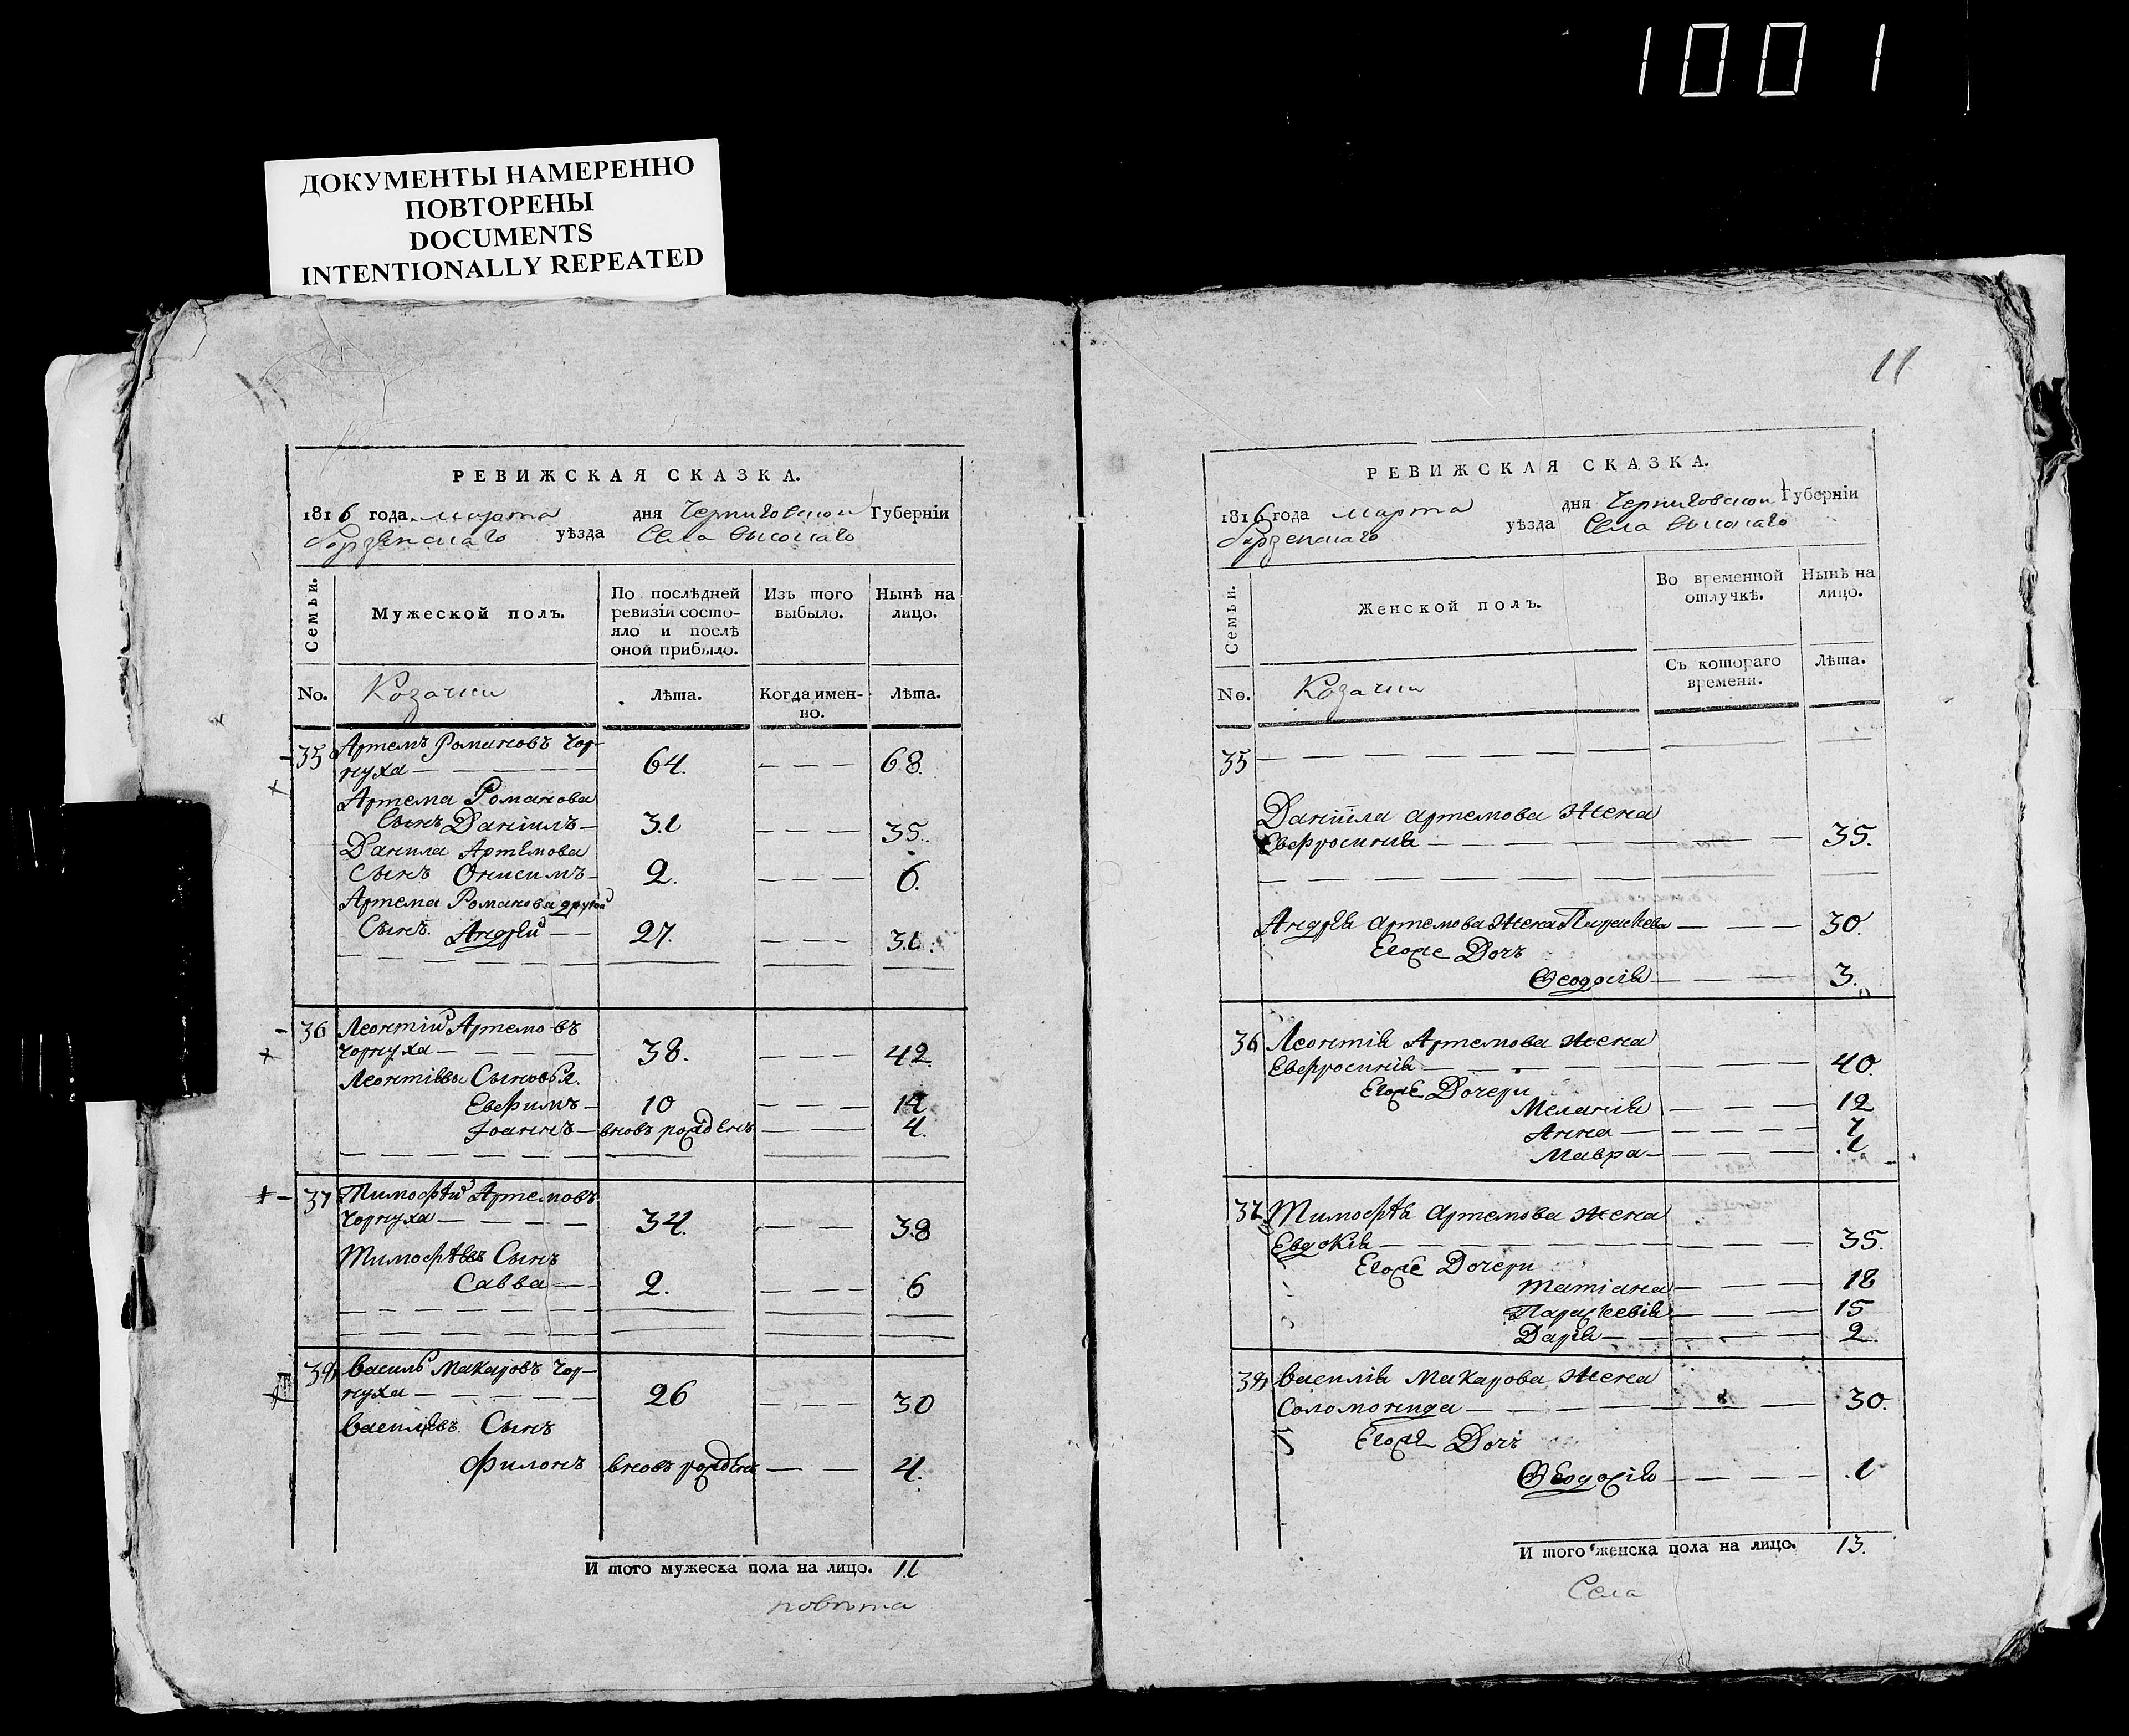 1001
ДОКУМЕНТЫ НАМЕРЕННО
ПОВТОРЕНЫ
DOCUMENTS
INTENTIONALLY REPEATED
РЕВИЖСКАЯ СКАЗКА.
1816 года марта дня Черниговской Губерніи
Борзенскаго уѣзда Села высокаго
Семьи.
Мужеской полъ.
По послѣдней ревизіи состояло и послѣ оной прибыло.
Изъ того выбыло.
Нынѣ на лицо.
No. Козачки Лѣта. Когда именно. Лѣта.
35 Артемъ Романовъ Чор-
нуха — 64. — — — 68.
Артема Романова
Сынъ Даніилъ — 31 — — — 35.
Данила Артемова
Сынъ Онисимъ — 2. — — — 6.
Артема Романова другой
Сынъ Андрѣй — — 27. — — — 31.
36 Леонтій Артемовъ
Чорнуха — — — — 38. — — — 42
Леонтіевы Сыновья.
Евфимъ — 10 — — — 14
Іоаннъ — вновь рожденъ — — — 4.
37 Тимофѣй Артемовъ
Чорнуха — — — — 34. — — — 38
Тимофѣевъ Сынъ
Савва — 2. — — — 6
38 Василь Макаровъ Чор-
нуха — — — — 26 — — — 30
Василіевъ Сынъ
Филонъ вновь рожденъ — — 4.
И того мужеска пола на лицо. 11
11
РЕВИЖСКАЯ СКАЗКА.
1816 года марта дня Черниговской Губерніи
Борзенскаго уѣзда Села высокаго
Семьи.
Женской полъ.
Во временной отлучкѣ.
Нынѣ на лицо.
Съ котораго времени.
Лѣта.
No. Козачки
35 — — — — — —
Даніила Артемова жена
Евфросинія — — — — 35.
Андрѣя Артемова жена Параскева — — — 30.
Егоже Дочъ
Ѳеодосія — — — 3.
36 Леонтія Артемова жена
Евфросинія — — — — 40.
Егоже Дочери
Меланія — — — 12
Анна — — — 7
Мавра — — — 1
37 Тимофѣя Артемова жена
Евдокія — — — — 35.
Егоже Дочери
Татіана — — — 18
Параскевія — — — 15
Дарія — — — 2
38 Василія Макарова жена
Соломонида — — — — 30.
Егоже Дочъ
Ѳеодосія — — — 1
И того женска пола на лицо. 13.
Села